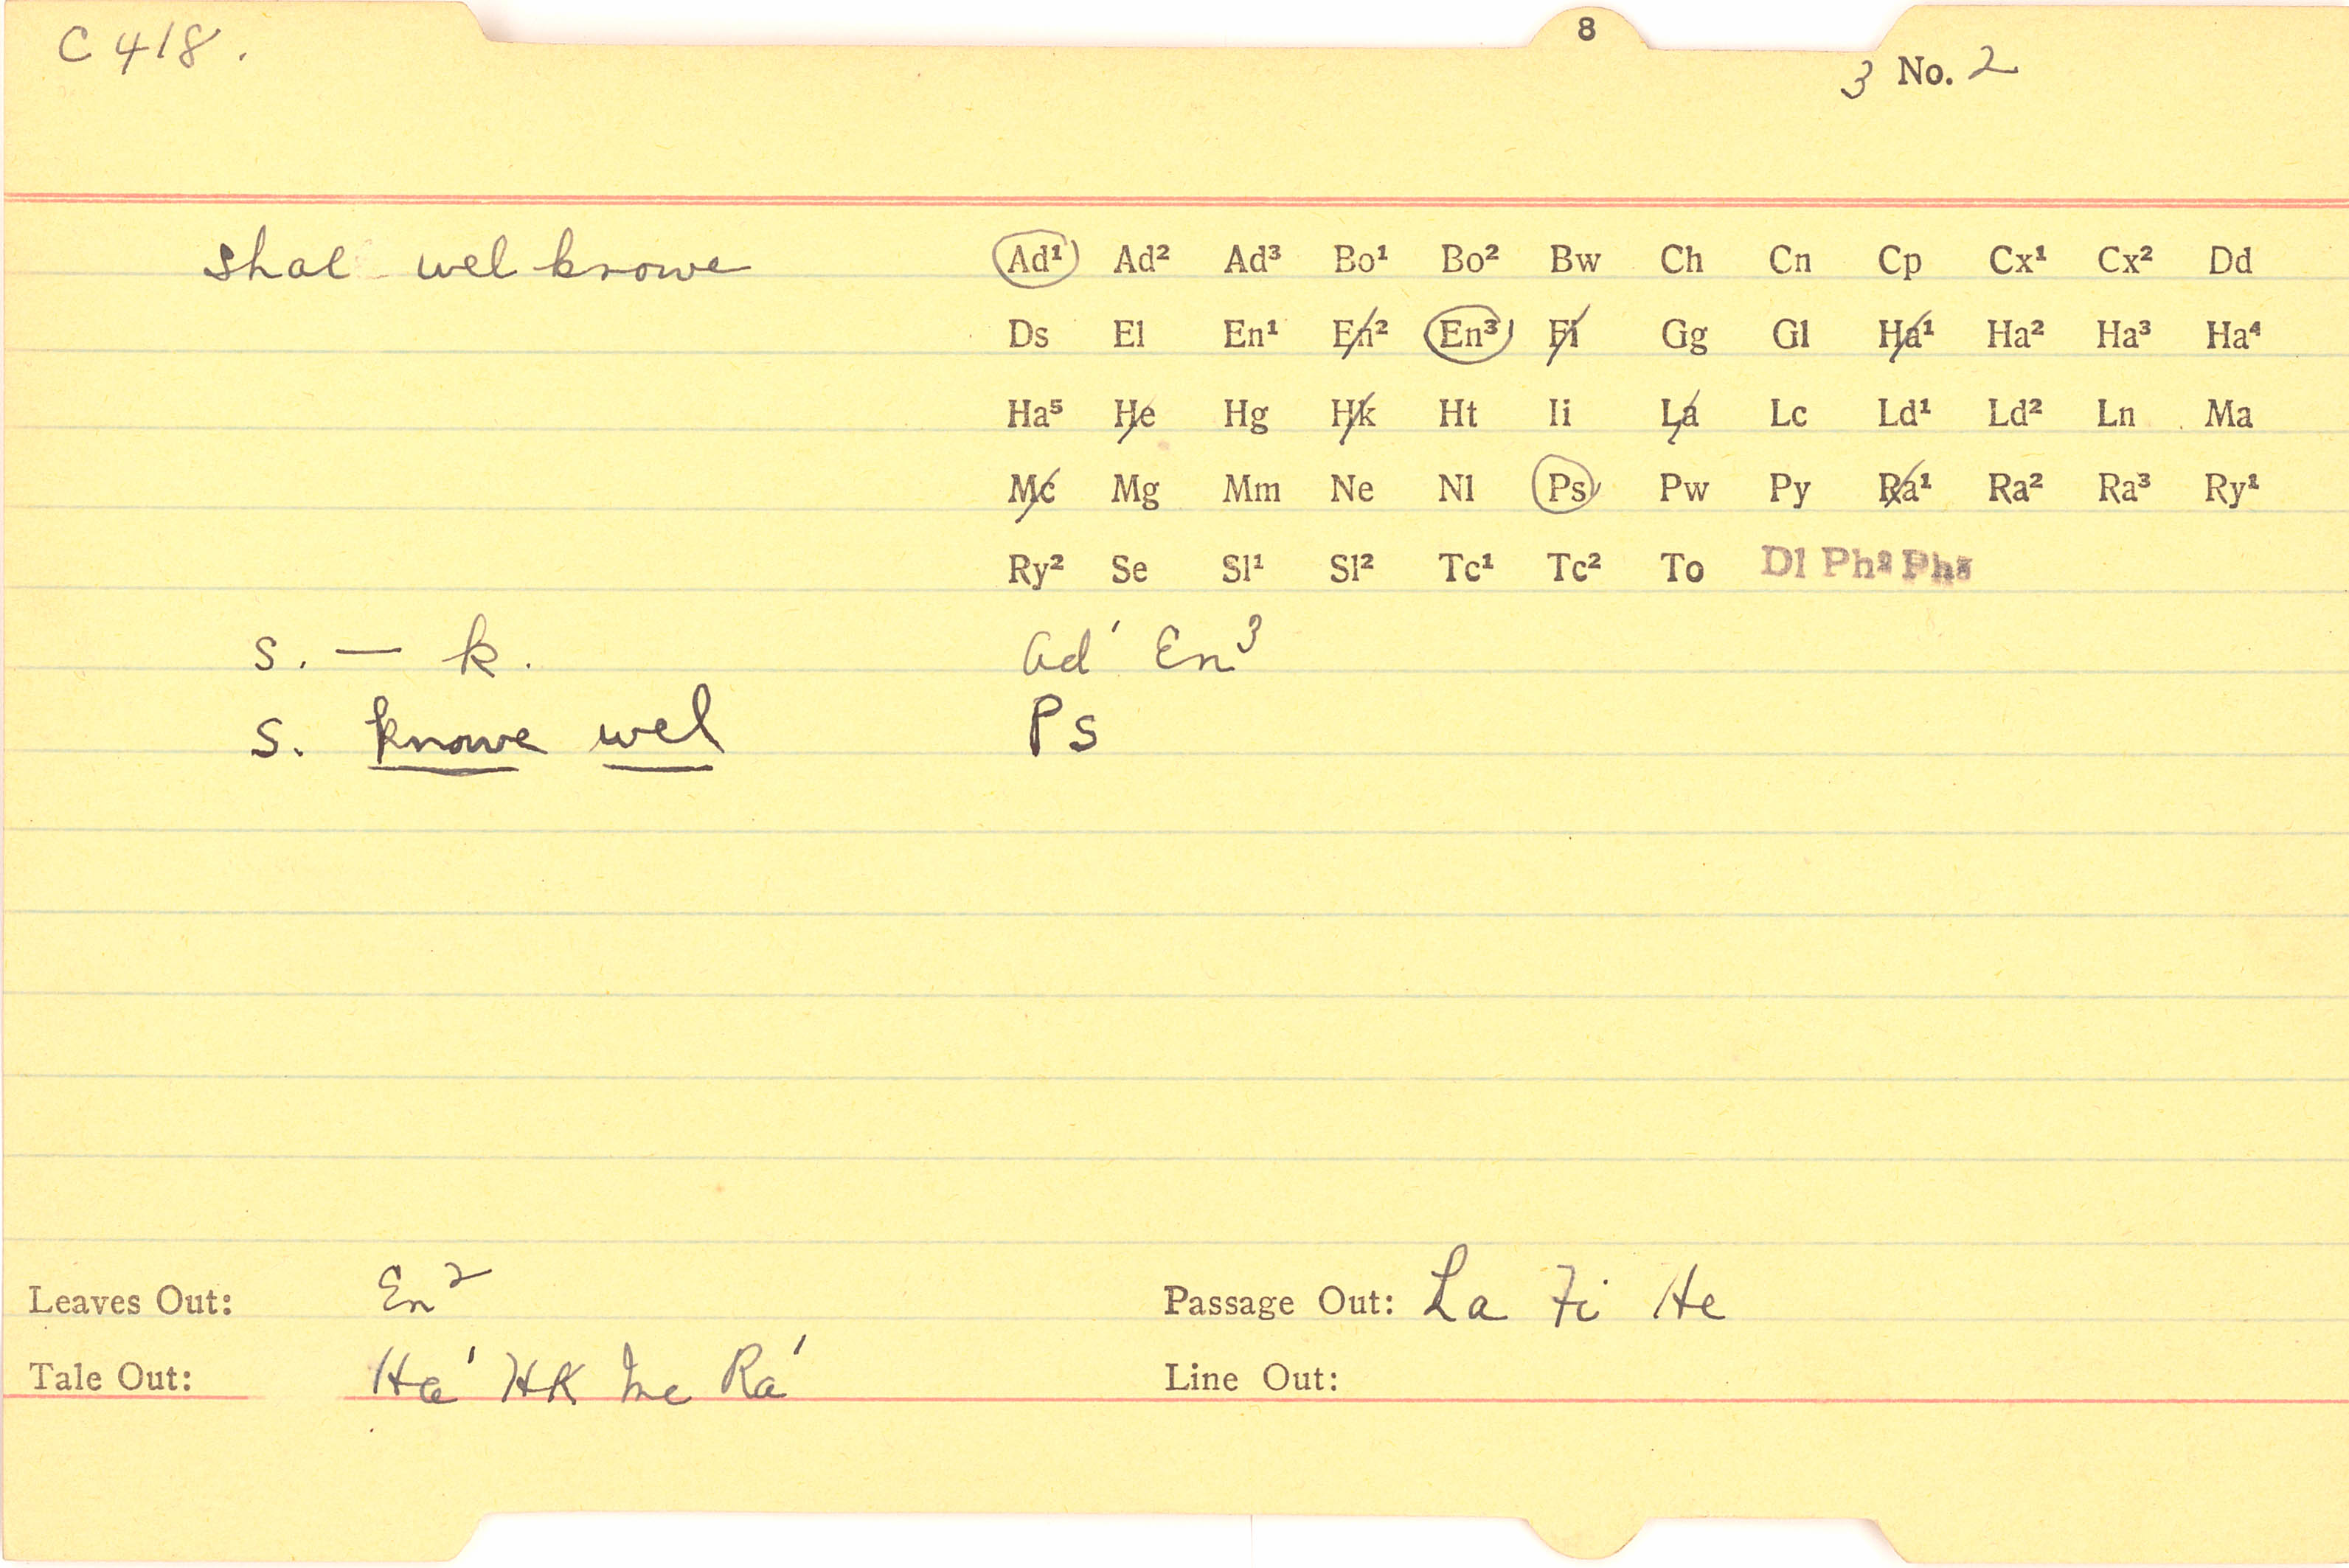 C 418.
8
3 No. 2
shal wel knowe
Ad¹ Ad² Ad³ Bo¹ Bo² Bw Ch Cn Cp Cx¹ Cx² Dd
Ds El En¹ En² En³ Fi Gg Gl Ha¹ Ha² Ha³ Ha⁴
Ha⁵ He Hg Hk Ht Ii La Lc Ld¹ Ld² Ln Ma
Mc Mg Mm Ne Nl Ps Pw Py Ra¹ Ra² Ra³ Ry¹
Ry² Se Sl¹ Sl² Tc¹ Tc² To Dl Ph² Ph³
s. — k. Ad¹ En³
s. knowe wel Ps
Leaves Out: En² Passage Out: La Fi He
Tale Out: Ha¹ HK Mc Ra¹ Line Out: